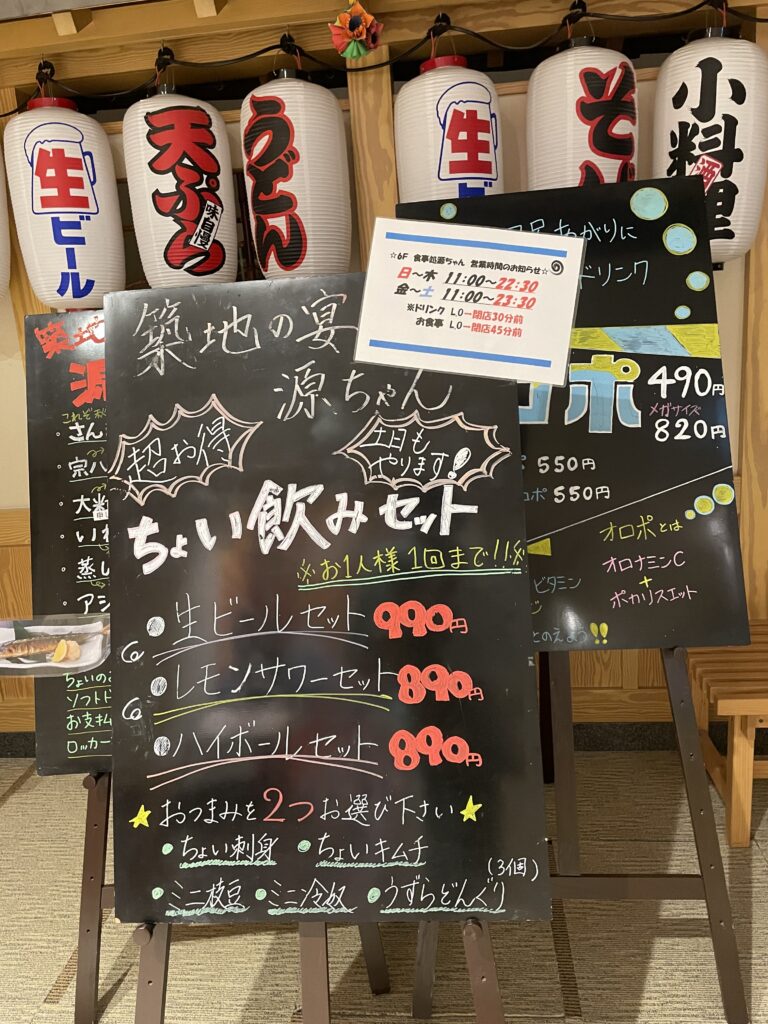 生ビール
天ぷら
味自慢
うどん
生
そば
小料理
酒
☆6F 食事処源ちゃん 営業時間のお知らせ☆
日～木 11:00～22:30
金～土 11:00～23:30
※ドリンク LO→閉店30分前
お食事 LO→閉店45分前
築地の宴
源ちゃん
超お得
土日も
やります!
ちょい飲みセット
※お1人様1回まで!!※
・生ビールセット 990円
・レモンサワーセット 890円
・ハイボールセット 890円
★おつまみを2つお選び下さい★
・ちょい刺身 ・ちょいキムチ
・ミニ枝豆 ・ミニ冷奴 ・うずらどんぐり
(3個)
築地
源
・さん
・宗八
・大
・いわ
・蒸し
・アジ
ちょいの
ソフトド
お支払
ロッカー
あがりに
ドリンク
ロポ 490円
メガサイズ
820円
ポ 550円
ロポ 550円
オロポとは
オロナミンC
+
ポカリスエット
ビタミン
とのえよう!!